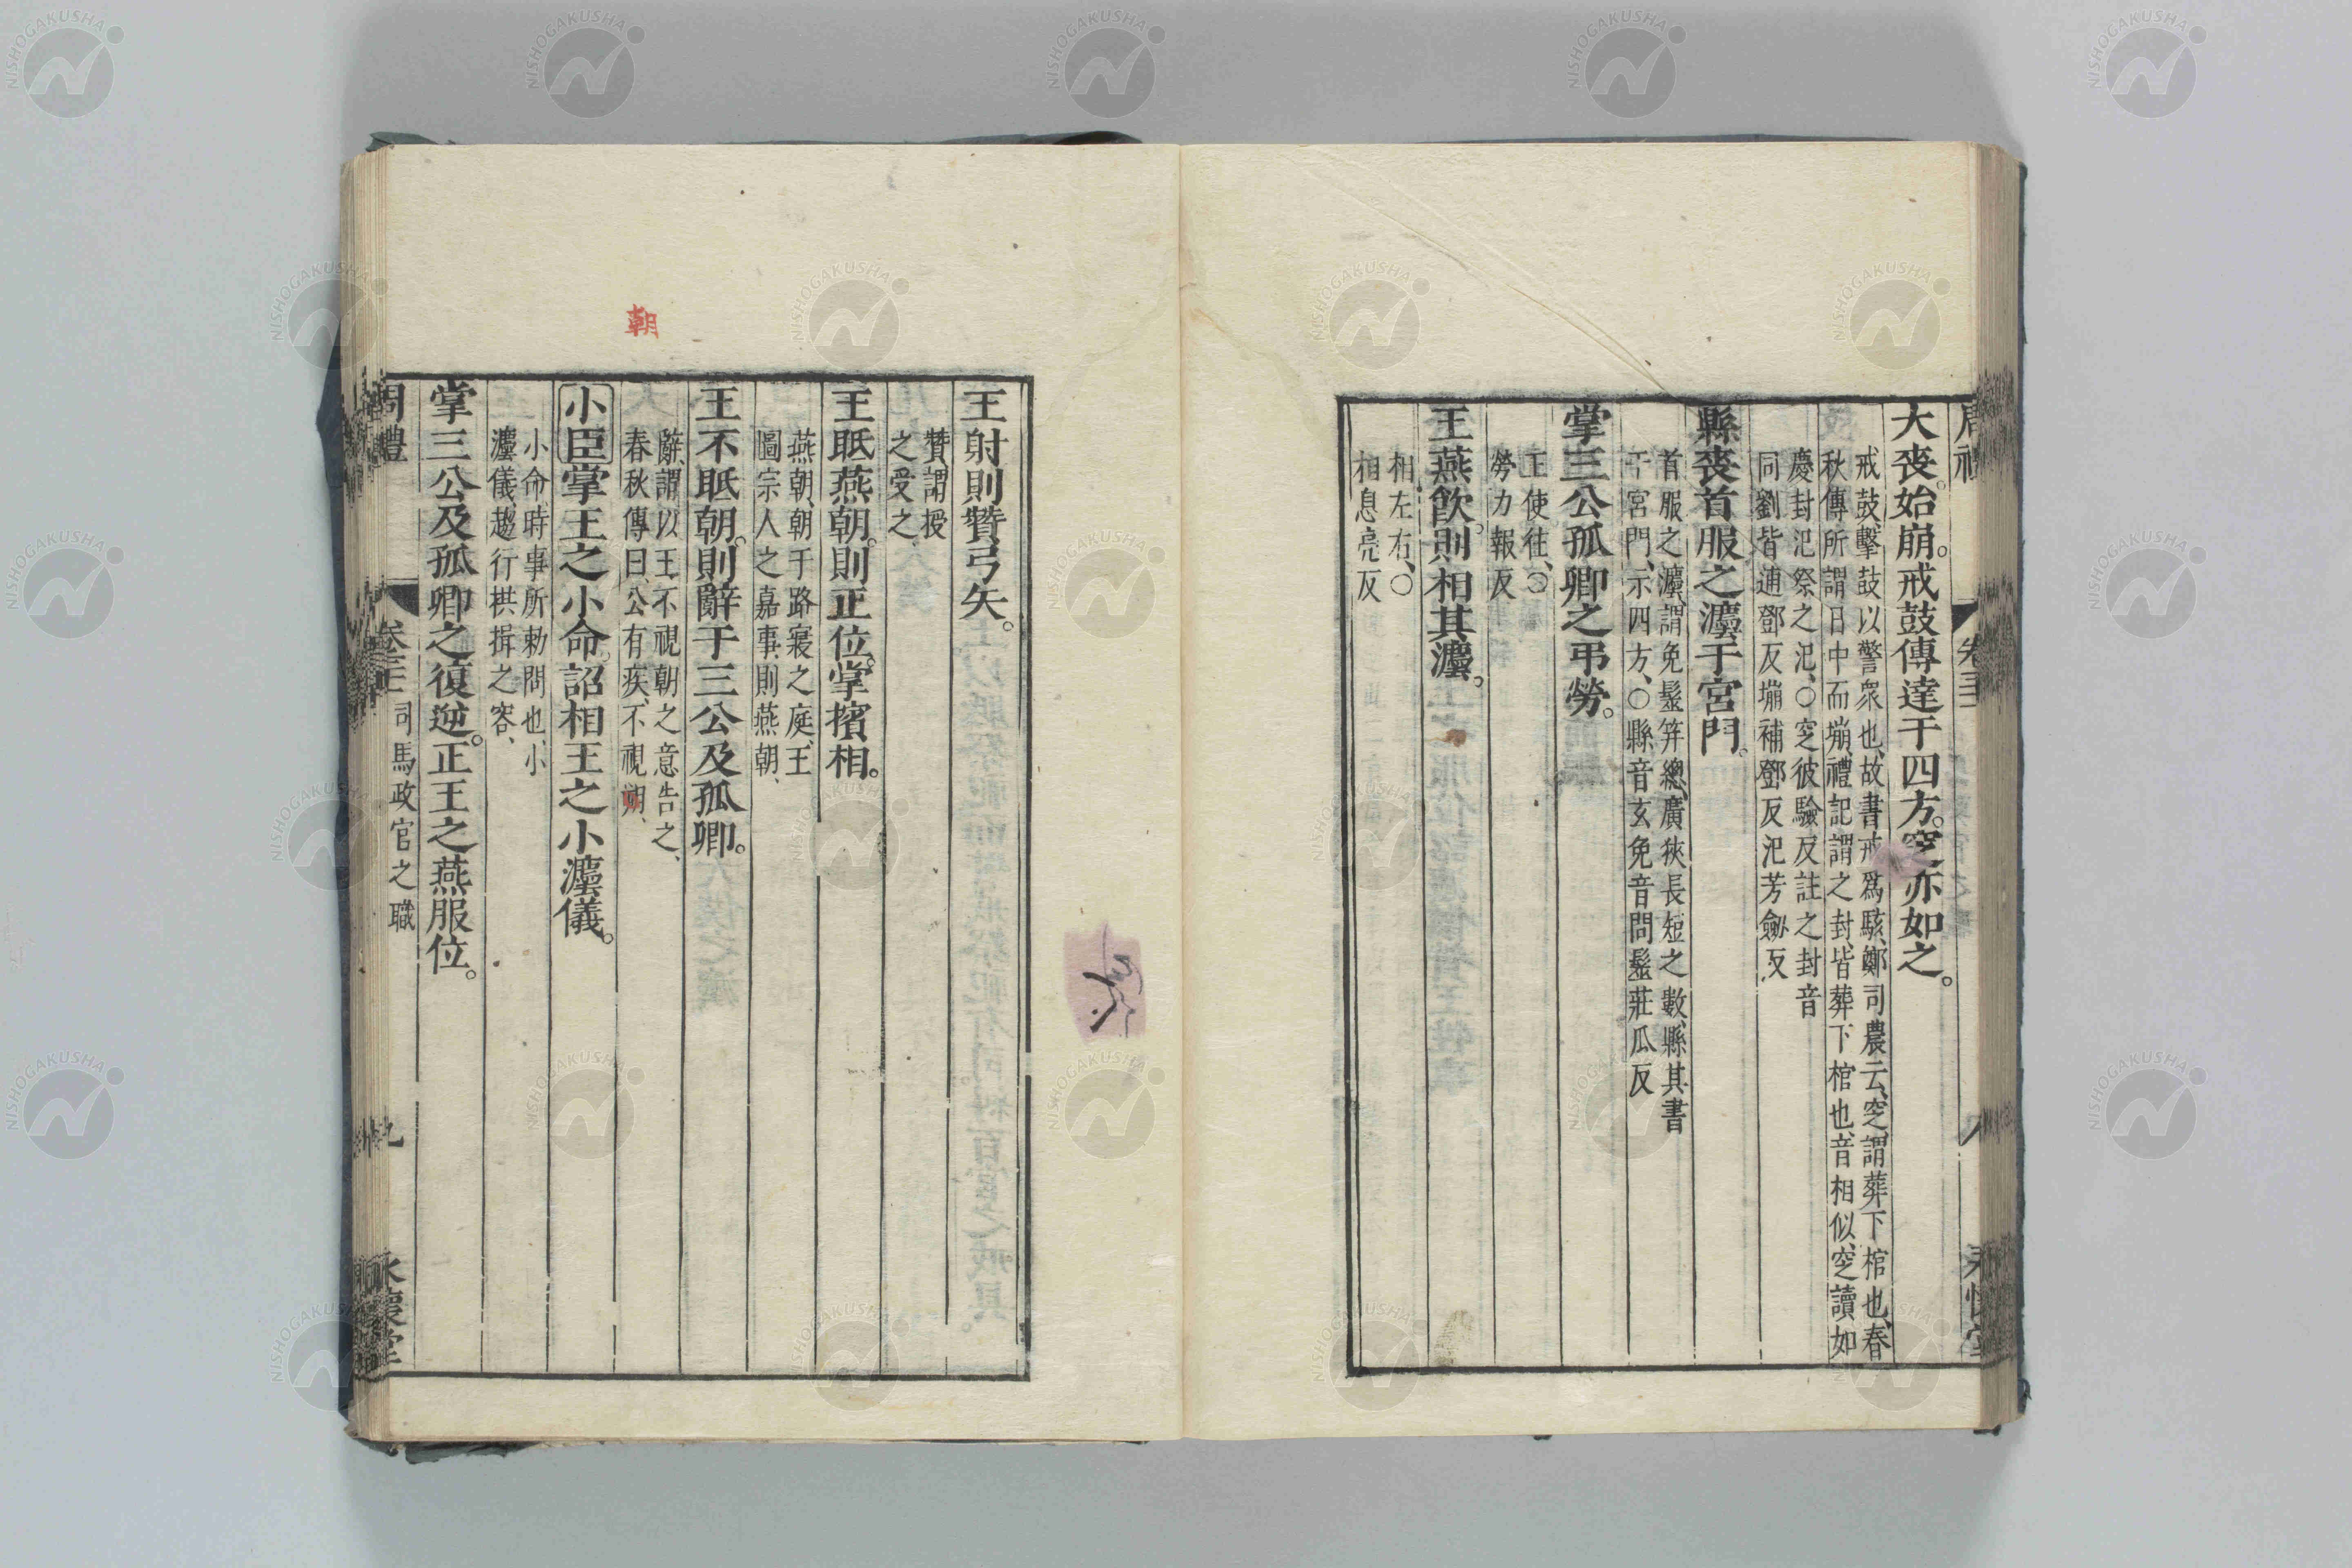 大喪。始崩。戒鼓傳達于四方。窆亦如之。
戒鼓、擊鼓以警衆也、故書戒爲駭、鄭司農云、窆、謂葬下棺也、春
秋傳所謂日中而塴、禮記謂之封、皆葬下棺也、音相似、窆讀如
慶封氾祭之氾、○窆彼驗反註之封音
同劉皆逋鄧反塴補鄧反氾芳劒反
縣喪首服之灋于宮門。
首服之灋、謂免髽笄總、廣狹長短之數、縣其書
于宮門、示四方、○縣音玄免音問髽莊瓜反
掌三公孤卿之弔勞。
王使往、○
勞力報反
王燕飲。則相其灋。
相左右、○
相息亮反
王射則贊弓矢。
贊、謂授
之受之、
王眂燕朝。則正位。掌擯相。
燕朝、朝于路寢之庭、王
圖宗人之嘉事、則燕朝、
王不眂朝。則辭于三公及孤卿。
辭、謂以王不視朝之意告之、
春秋傳曰、公有疾、不視朔、
朝
小臣掌王之小命。詔相王之小灋儀。
小命、時事所勅問也、小
灋儀、趨行拱揖之容、
掌三公及孤卿之復逆。正王之燕服位。
周禮 卷三十一 司馬政官之職 九 永懷堂
NISHOGAKUSHA